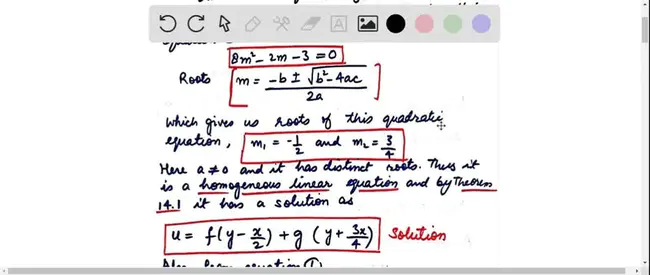 8m² - 2m - 3 = 0
Roots m = -b ± √b² - 4ac / 2a
which gives us roots of this quadratic
equation, m₁ = -1/2 and m₂ = 3/4
Here a ≠ 0 and it has distinct roots. Thus it
is a homogeneous linear equation and by Theorem
14.1 it has a solution as
u = f(y - x/2) + g (y + 3x/4) Solution
Also from equation ①